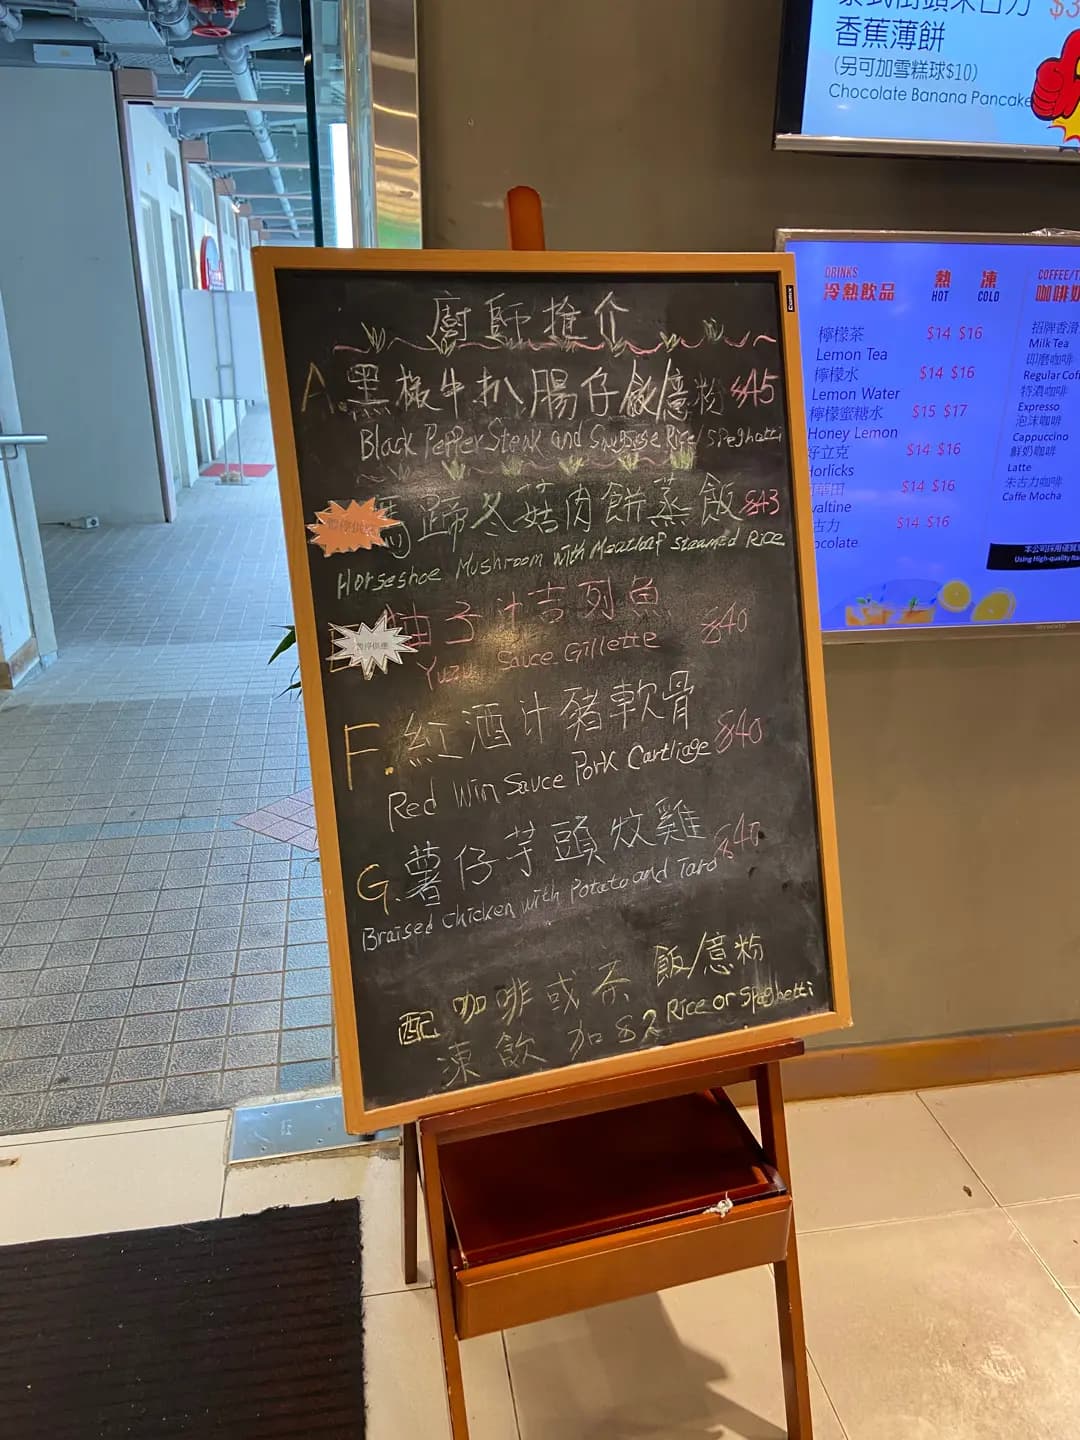 廚師推介
A.黑椒牛扒腸仔飯/意粉 $45
Black Pepper Steak and Rice/Speghatti
暫停供應
馬蹄冬菇肉餅蒸飯 $43
Horseshoe Mushroom with Meatloaf Steamed Rice
暫停供應
柚子汁吉列魚 $40
Yuzu Sauce Gillette
F.紅酒汁豬軟骨 $40
Red Win Sauce Pork Cartliage
G.薯仔芋頭炆雞 $40
Braised Chicken with Potato and Taro
配 咖啡或茶 飯/意粉
凍飲加$2 Rice or Spaghetti
香蕉薄餅
(另可加雪糕球$10)
Chocolate Banana Pancake
DRINKS
冷熱飲品
熱 凍
HOT COLD
檸檬茶 $14 $16
Lemon Tea
檸檬水 $14 $16
Lemon Water
檸檬蜜糖水 $15 $17
Honey Lemon
好立克 $14 $16
Horlicks
$14 $16
valtine
古力 $14 $16
ocolate
COFFEE/T
咖啡
招牌香滑
Milk Tea
即磨咖啡
Regular Coff
特濃咖啡
Expresso
泡沫咖啡
Cappuccino
鮮奶咖啡
Latte
朱古力咖啡
Caffe Mocha
本公司採用優質
Using High-quality